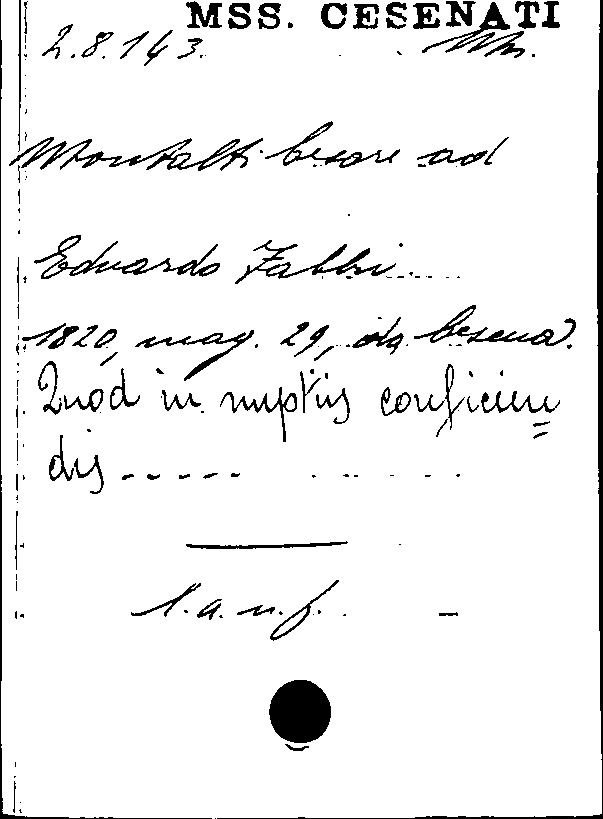 MSS. CESENATI
2.8.143. Mn.
Montalti Cesare ad
Eduardo Fabbri
1820, mag. 29, da Cesena.
Quod in nuptiis conficien
dis -----
l.a.n.f. -